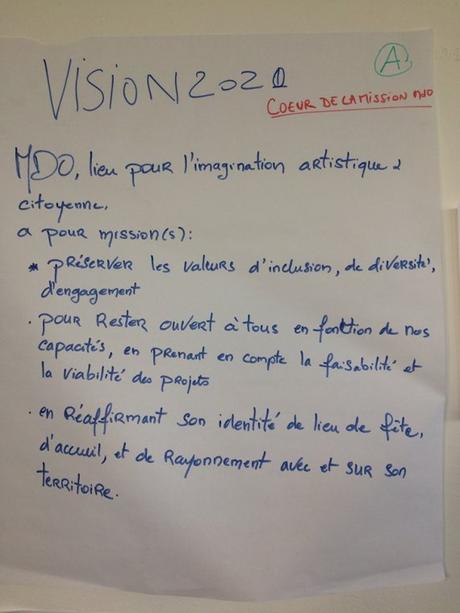 VISION 2021
A
COEUR DE LA MISSION MDO
MDO, lieu pour l'imagination artistique &
citoyenne.
a pour mission(s):
* PRÉSERVER les valeurs d'inclusion, de diversité,
d'engagement
. pour Rester ouvert à tous en fonction de nos
capacités, en prenant en compte la faisabilité et
la viabilité des projets
. en Réaffirmant son identité de lieu de fête,
d'accueil, et de Rayonnement avec et sur son
territoire.